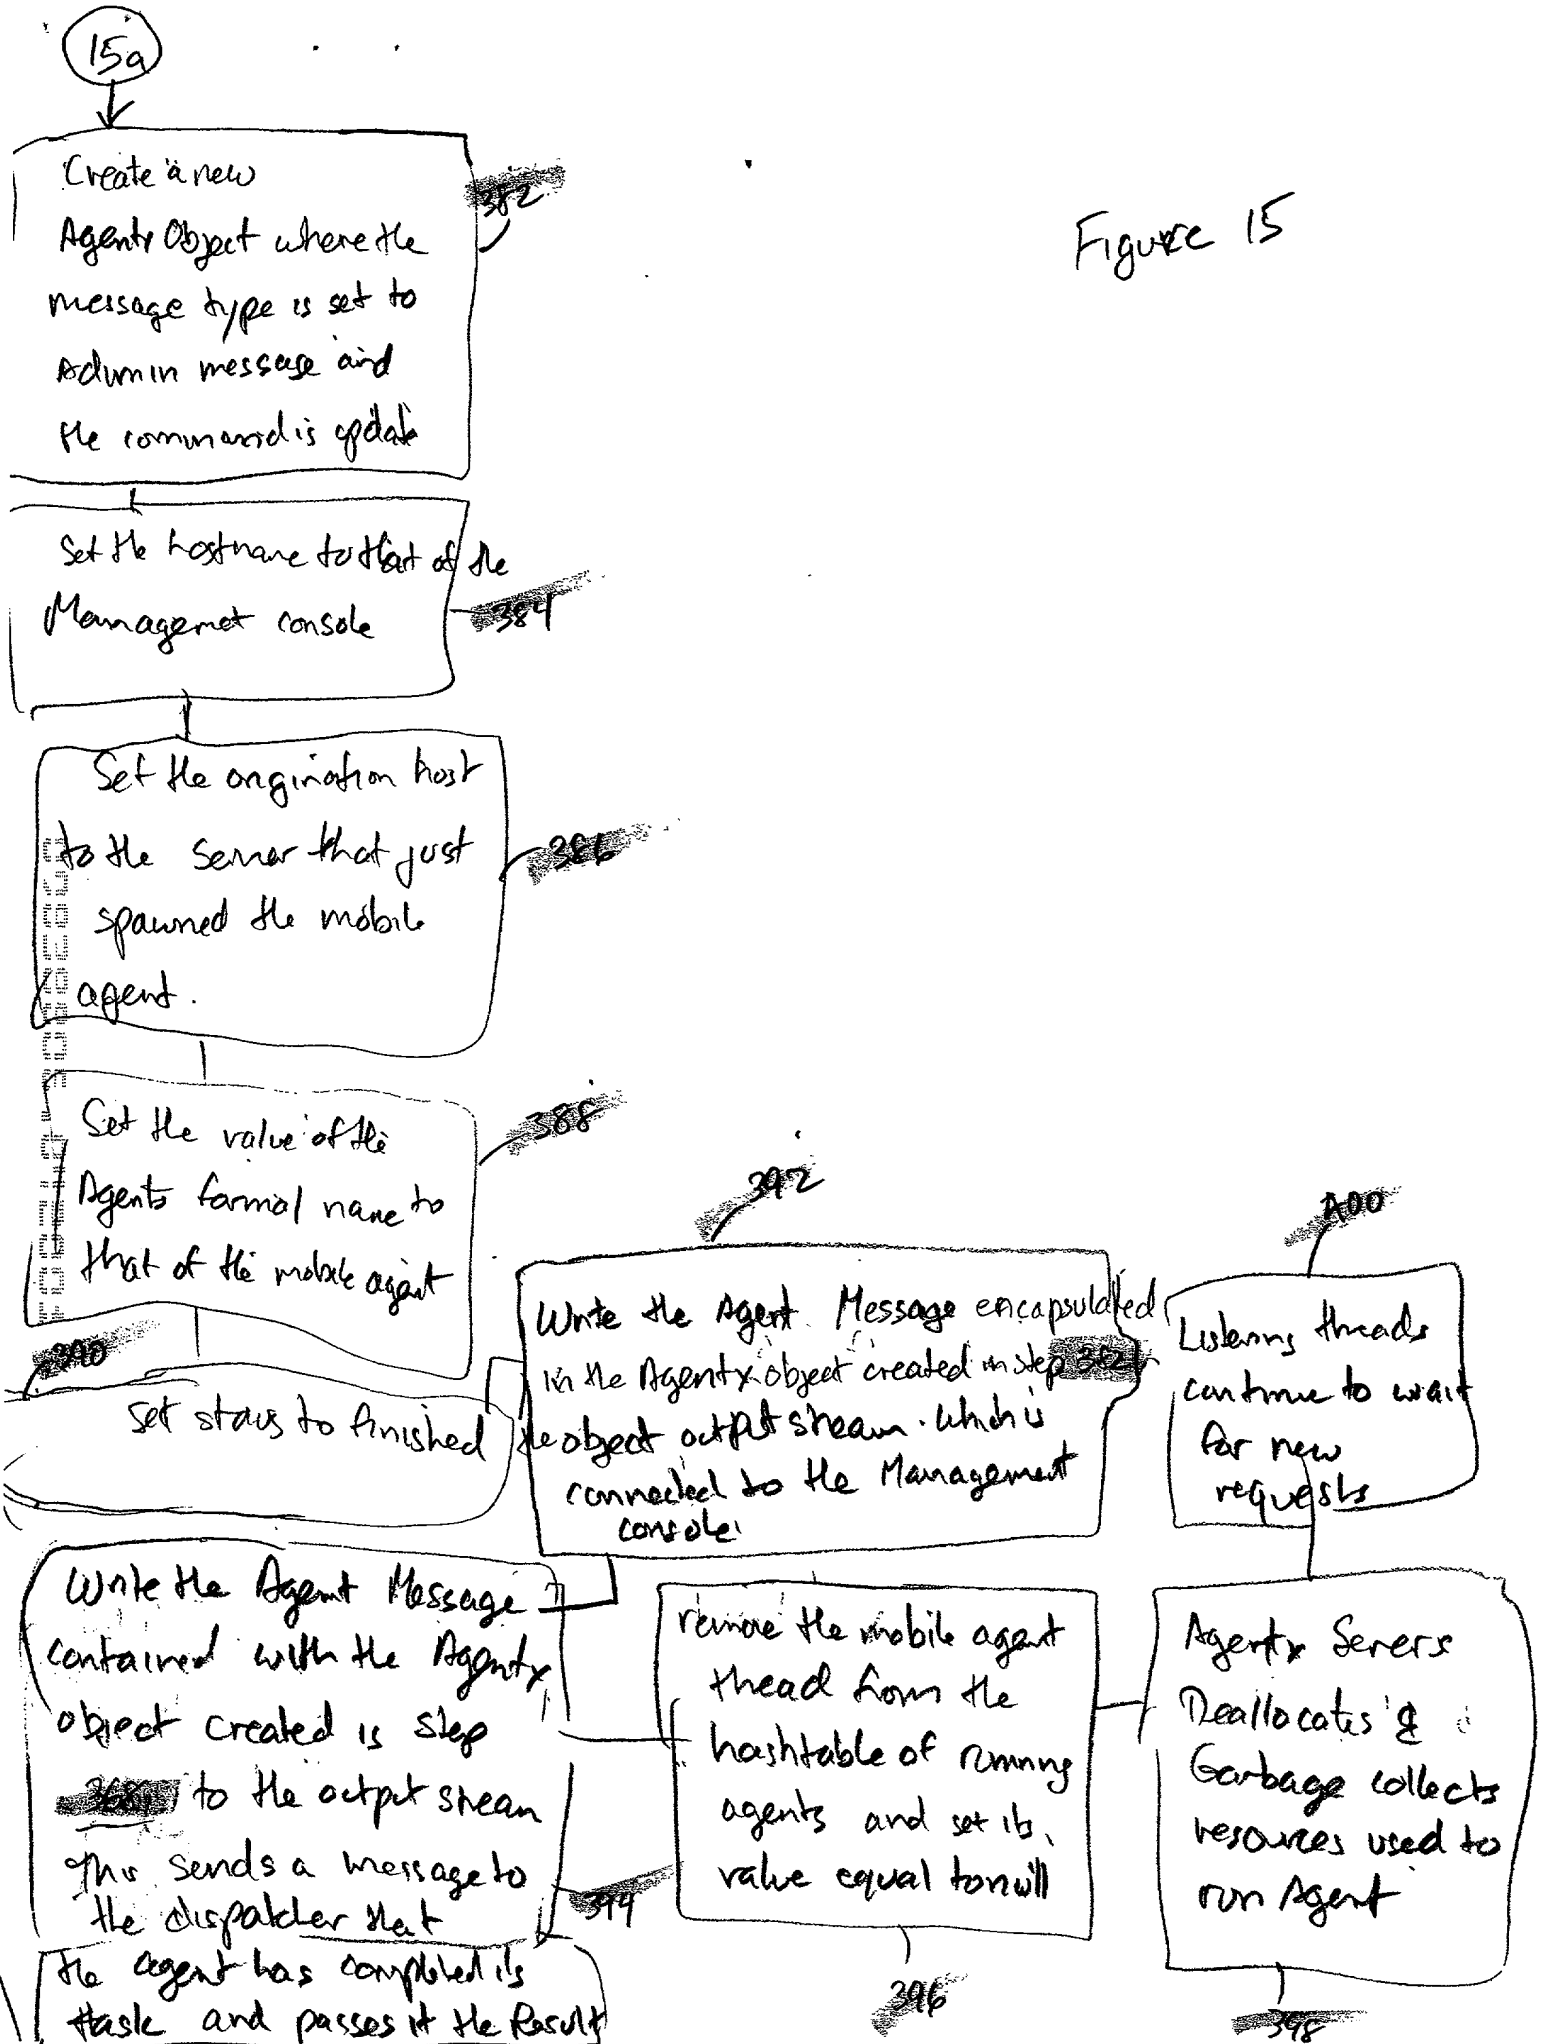 15a
Create a new
Agentx Object where the
message type is set to
Admin message and
the command is update
382
Figure 15
Set the hostname to that of the
Managemet console
384
Set the origination host
to the server that just
spawned the mobile
agent.
386
Set the value of the
Agents formal name to
that of the mobile agent
388
390
set status to finished
392
Write the Agent Message encapsulated
in the Agentx object created in step 382
the object output stream. which is
connected to the Management
console.
Write the Agent Message
contained with the Agentx
object created is step
368 to the output stream
This sends a message to
the dispatcher that
the agent has completed its
task and passes it the Result
394
remove the mobile agent
thead from the
hashtable of running
agents and set its
value equal to null
396
Agentx Servers
Deallocates &
Garbage collects
resources used to
run Agent
398
400
Listening threads
continue to wait
for new
requests